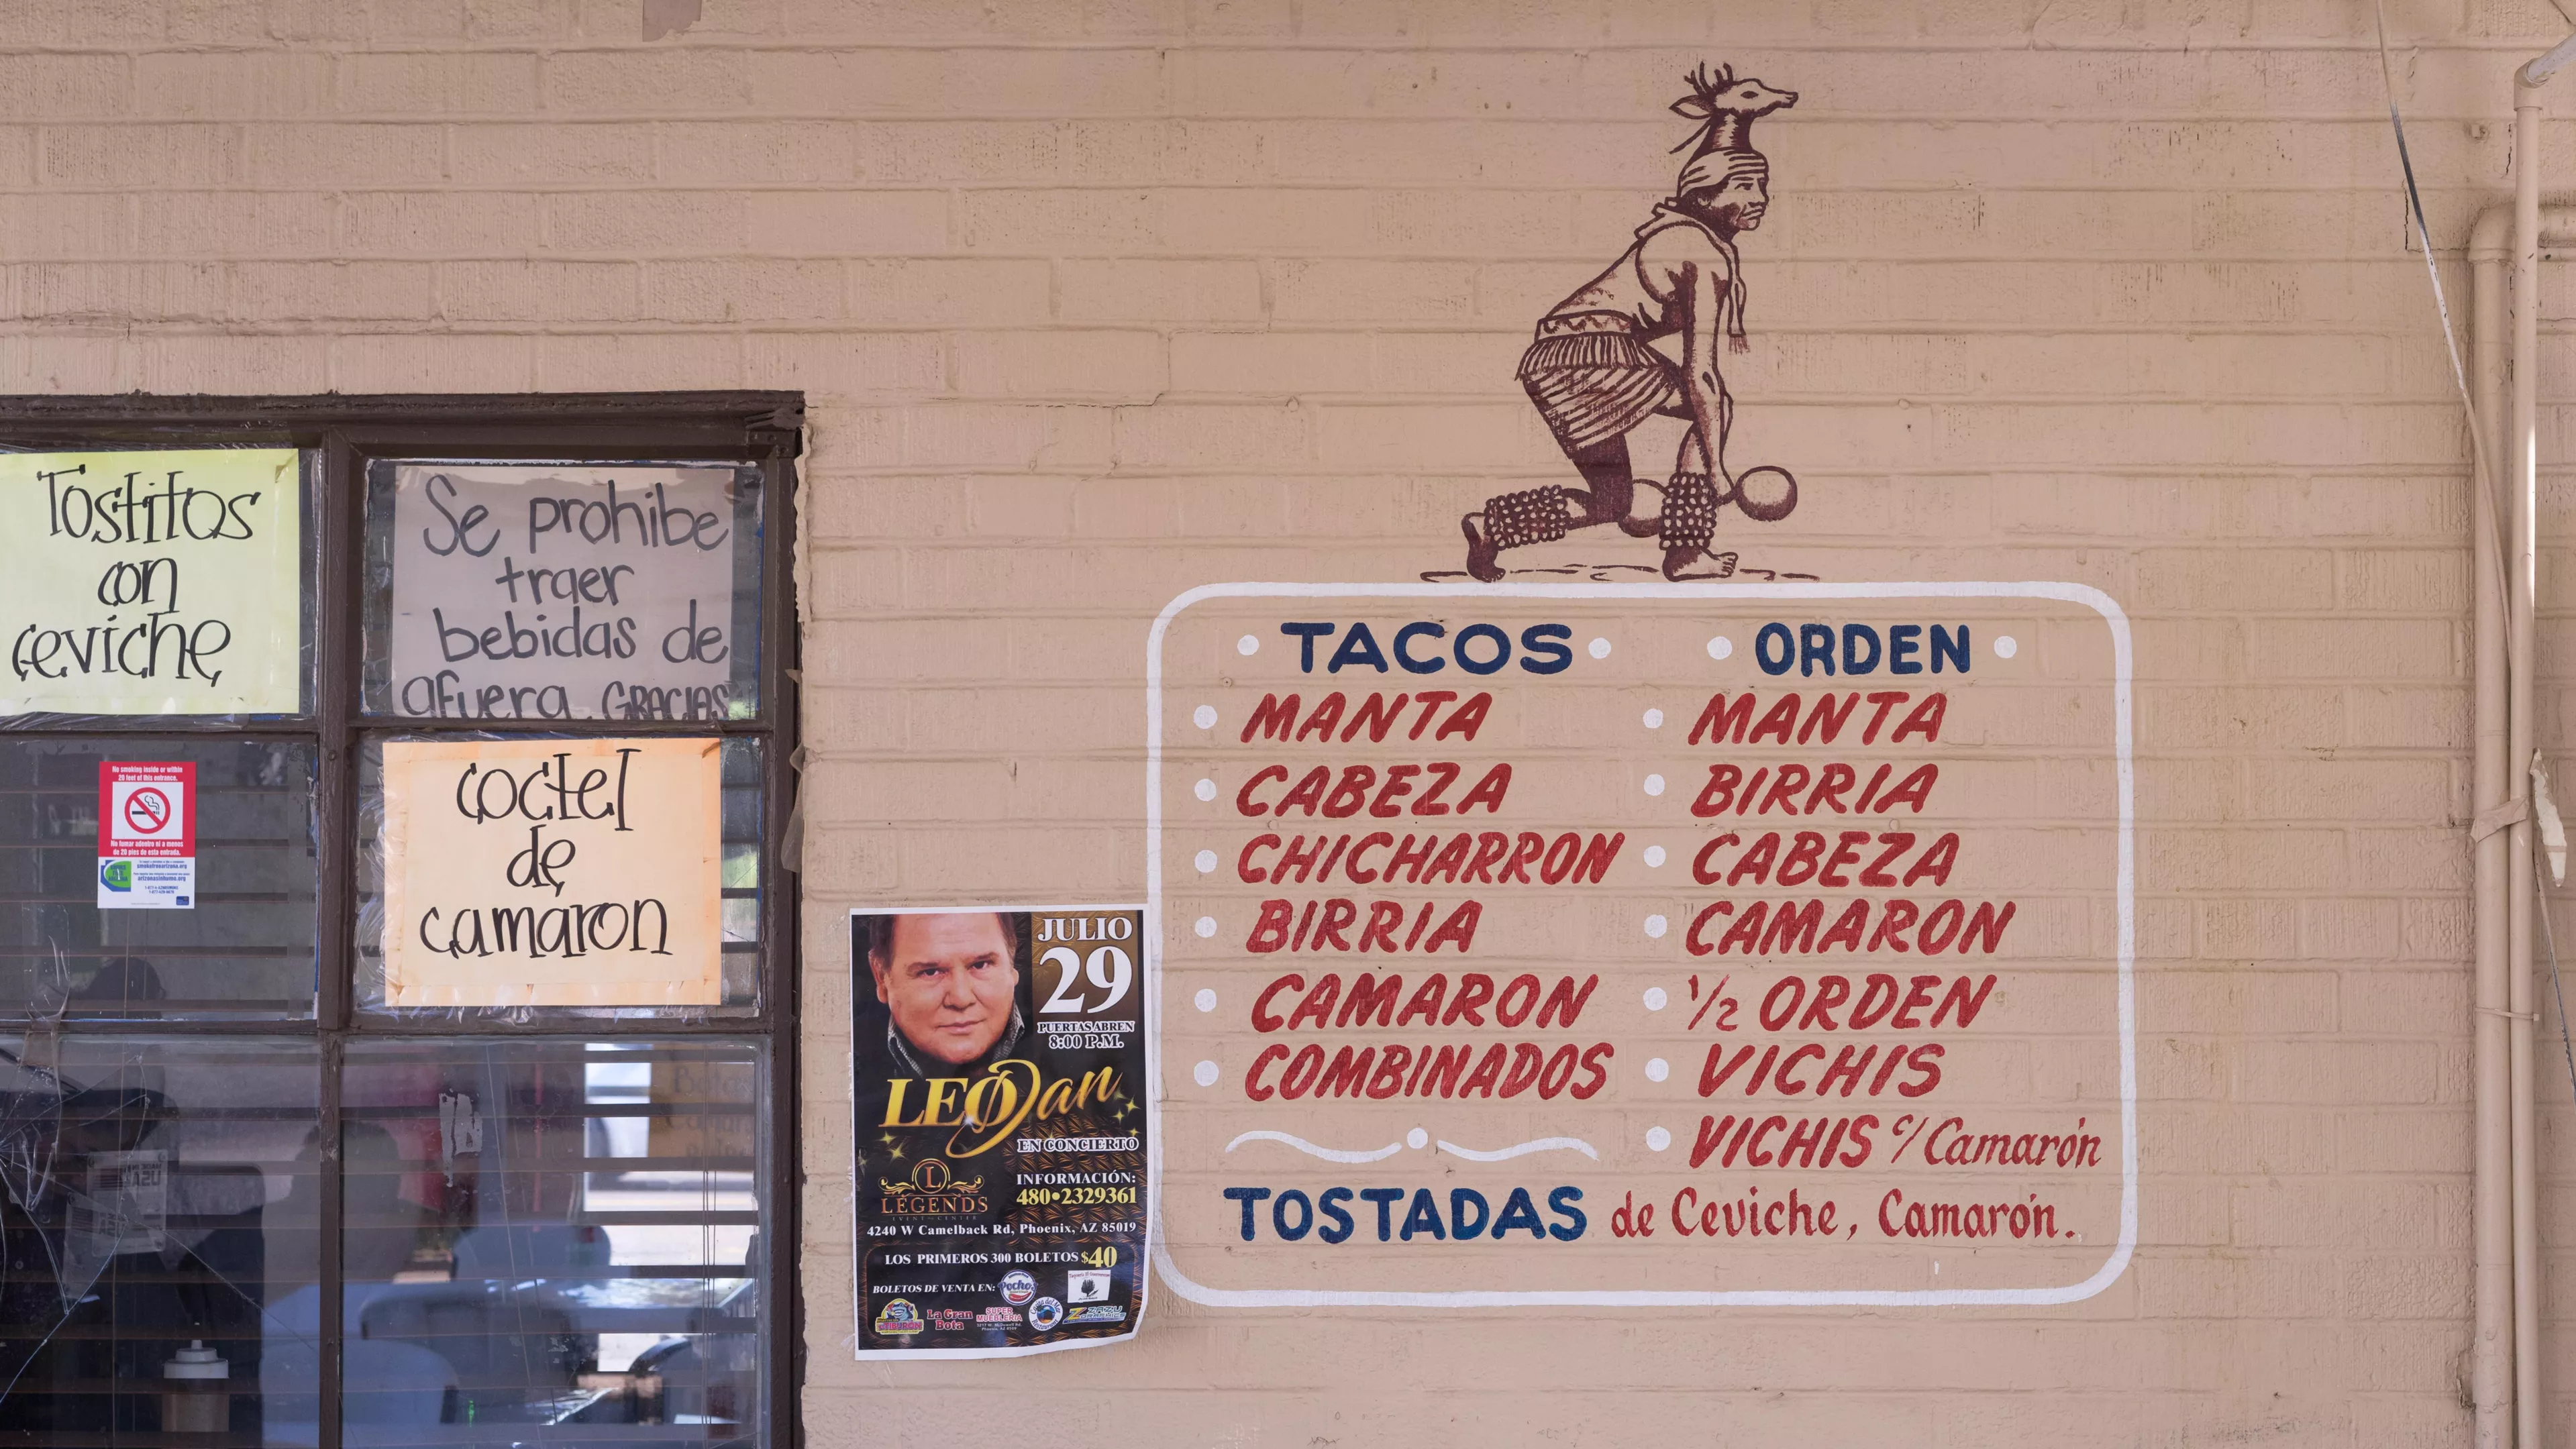 Tostitos
con
ceviche
Se prohibe
traer
bebidas de
afuera. GRACIAS
No smoking inside or within
20 feet of this entrance.
No fumar adentro ni a menos
de 20 pies de esta entrada.
smokefreearizona.org
arizonasinhumo.org
coctel
de
camaron
JULIO
29
PUERTAS ABREN
8:00 P.M.
LEO Dan
EN CONCIERTO
L
LEGENDS
EVENT CENTER
INFORMACIÓN:
480•2329361
4240 W Camelback Rd, Phoenix, AZ 85019
LOS PRIMEROS 300 BOLETOS $40
BOLETOS DE VENTA EN:
Pochos
La Gran
Bota
SUPER
MUEBLERIA
TACOS
MANTA
CABEZA
CHICHARRON
BIRRIA
CAMARON
COMBINADOS
ORDEN
MANTA
BIRRIA
CABEZA
CAMARON
1/2 ORDEN
VICHIS
VICHIS c/ Camarón
TOSTADAS de Ceviche, Camarón.